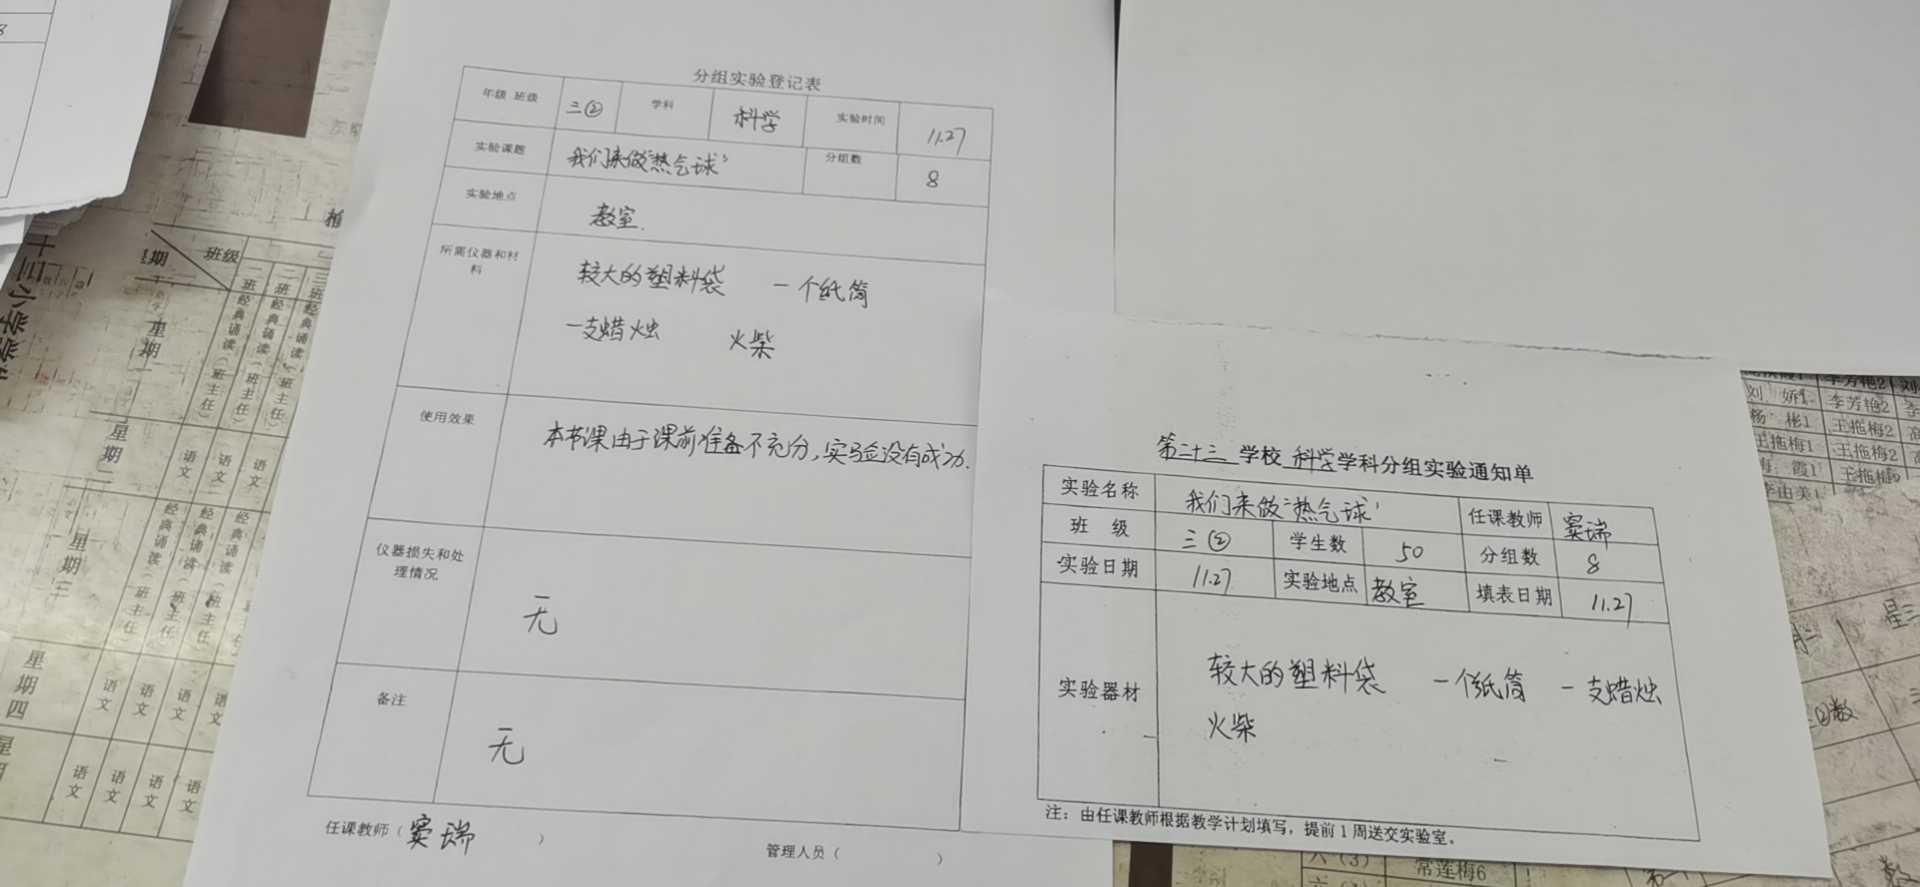 分组实验登记表
年级 班级 三② 学科 科学 实验时间 11.27
实验课题 我们来做“热气球” 分组数 8
实验地点 教室.
所需仪器和材料 较大的塑料袋 一个纸筒
一支蜡烛 火柴
使用效果 本节课由于课前准备不充分,实验没有成功.
仪器损失和处理情况 无
备注 无
任课教师（窦瑞 ）
管理人员（ ）
第二十三 学校 科学 学科分组实验通知单
实验名称 我们来做“热气球” 任课教师 窦瑞
班 级 三② 学生数 50 分组数 8
实验日期 11.27 实验地点 教室 填表日期 11.27
实验器材 较大的塑料袋 一个纸筒 一支蜡烛
火柴
注：由任课教师根据教学计划填写，提前1周送交实验室。
班级
星期
星期
星期三
星期四
一班 二班 三班
经典诵读（班主任） 经典诵读（班主任） 经典诵读（班主任）
语文 语文 语文
经典诵读（班主任） 经典诵读（班主任） 经典诵读（班主任）
语文 语文 语文 语文
语文 语文 语文 语文
李芳艳2
刘 娇1 李芳艳2
杨 彬1 王拖梅2
王拖梅1 王拖梅2
李由美1
六（3） 常莲梅6